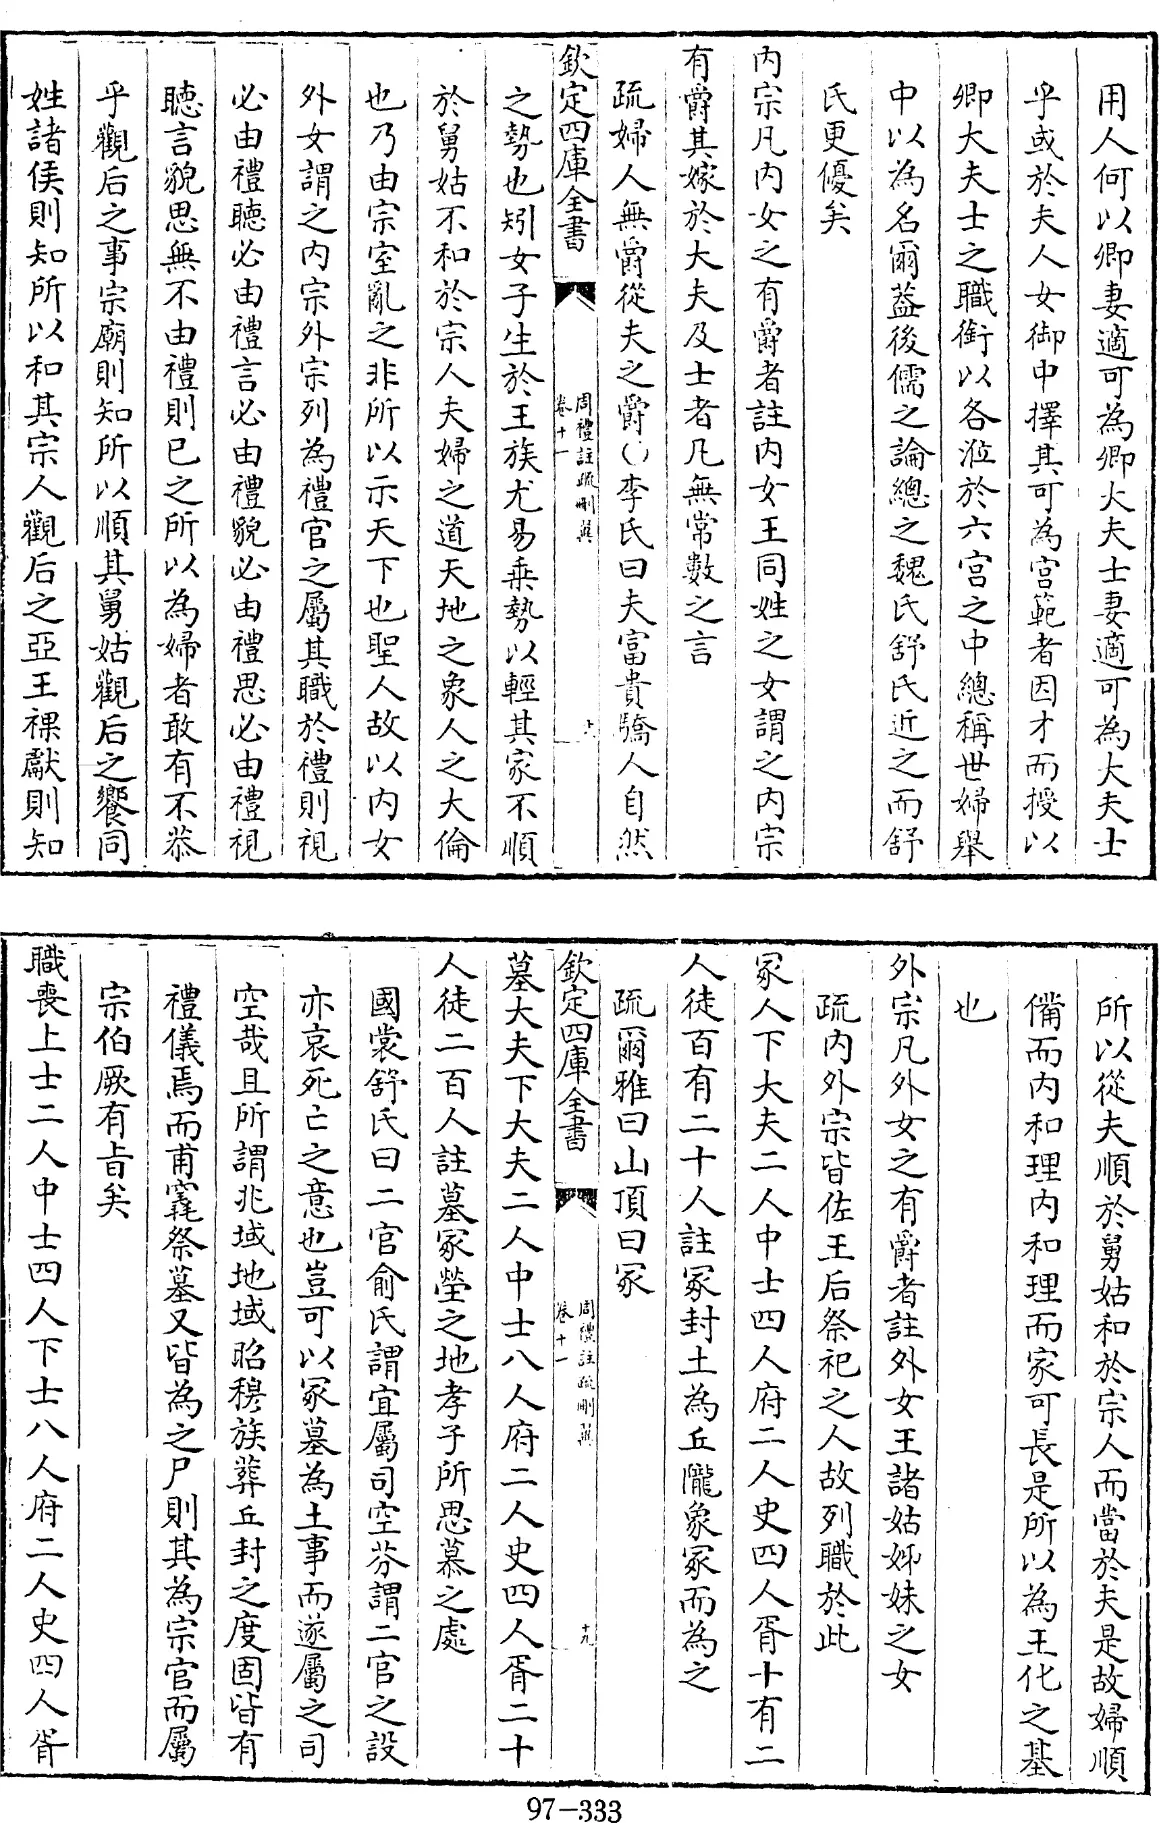 用人何以卿妻適可為卿大夫士妻適可為大夫士
乎或於夫人女御中擇其可為宮範者因才而授以
卿大夫士之職銜以各涖於六宮之中總稱世婦舉
中以為名爾葢後儒之論總之魏氏舒氏近之而舒
氏更優矣
內宗凡內女之有爵者註內女王同姓之女謂之內宗
有爵其嫁於大夫及士者凡無常數之言
疏婦人無爵從夫之爵〇李氏曰夫富貴驕人自然
欽定四庫全書
周禮註疏刪翼
卷十一
之勢也矧女子生於王族尤易乗勢以輕其家不順
於舅姑不和於宗人夫婦之道天地之象人之大倫
也乃由宗室亂之非所以示天下也聖人故以內女
外女謂之內宗外宗列為禮官之屬其職於禮則視
必由禮聽必由禮言必由禮貌必由禮思必由禮視
聽言貌思無不由禮則已之所以為婦者敢有不恭
乎觀后之事宗廟則知所以順其舅姑觀后之饗同
姓諸侯則知所以和其宗人觀后之亞王祼獻則知
所以從夫順於舅姑和於宗人而當於夫是故婦順
備而內和理內和理而家可長是所以為王化之基
也
外宗凡外女之有爵者註外女王諸姑姊妹之女
疏內外宗皆佐王后祭祀之人故列職於此
冢人下大夫二人中士四人府二人史四人胥十有二
人徒百有二十人註冢封土為丘隴象冢而為之
疏爾雅曰山頂曰冢
欽定四庫全書
周禮註疏刪翼
卷十一
十九
墓大夫下大夫二人中士八人府二人史四人胥二十
人徒二百人註墓冢塋之地孝子所思慕之處
國裳舒氏曰二官俞氏謂宜屬司空芬謂二官之設
亦哀死亡之意也豈可以冢墓為土事而遂屬之司
空哉且所謂兆域地域昭穆族葬丘封之度固皆有
禮儀焉而甫竁祭墓又皆為之尸則其為宗官而屬
宗伯厥有旨矣
職喪上士二人中士四人下士八人府二人史四人胥
97-333